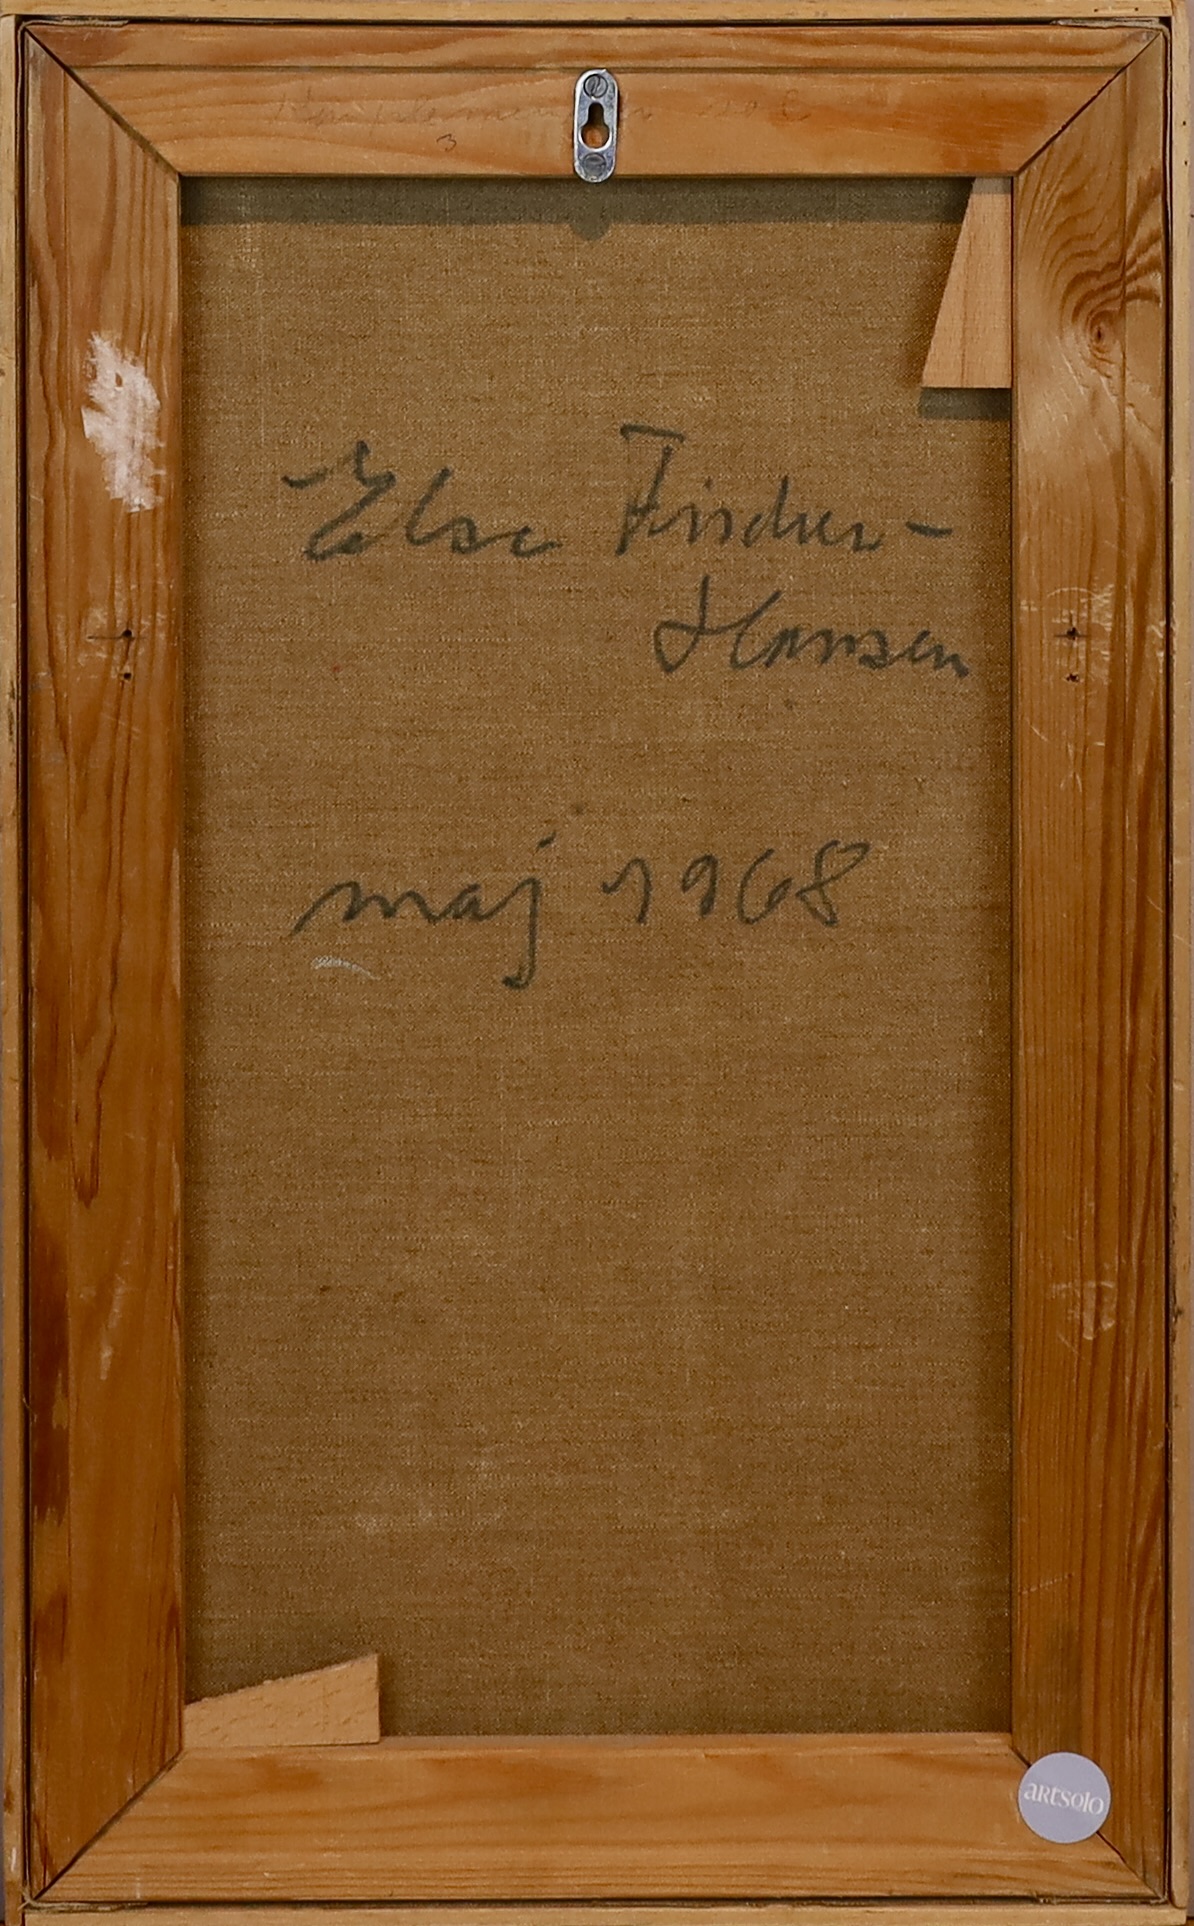 3
Else Fischer-
Hansen
maj 1968
artsolo